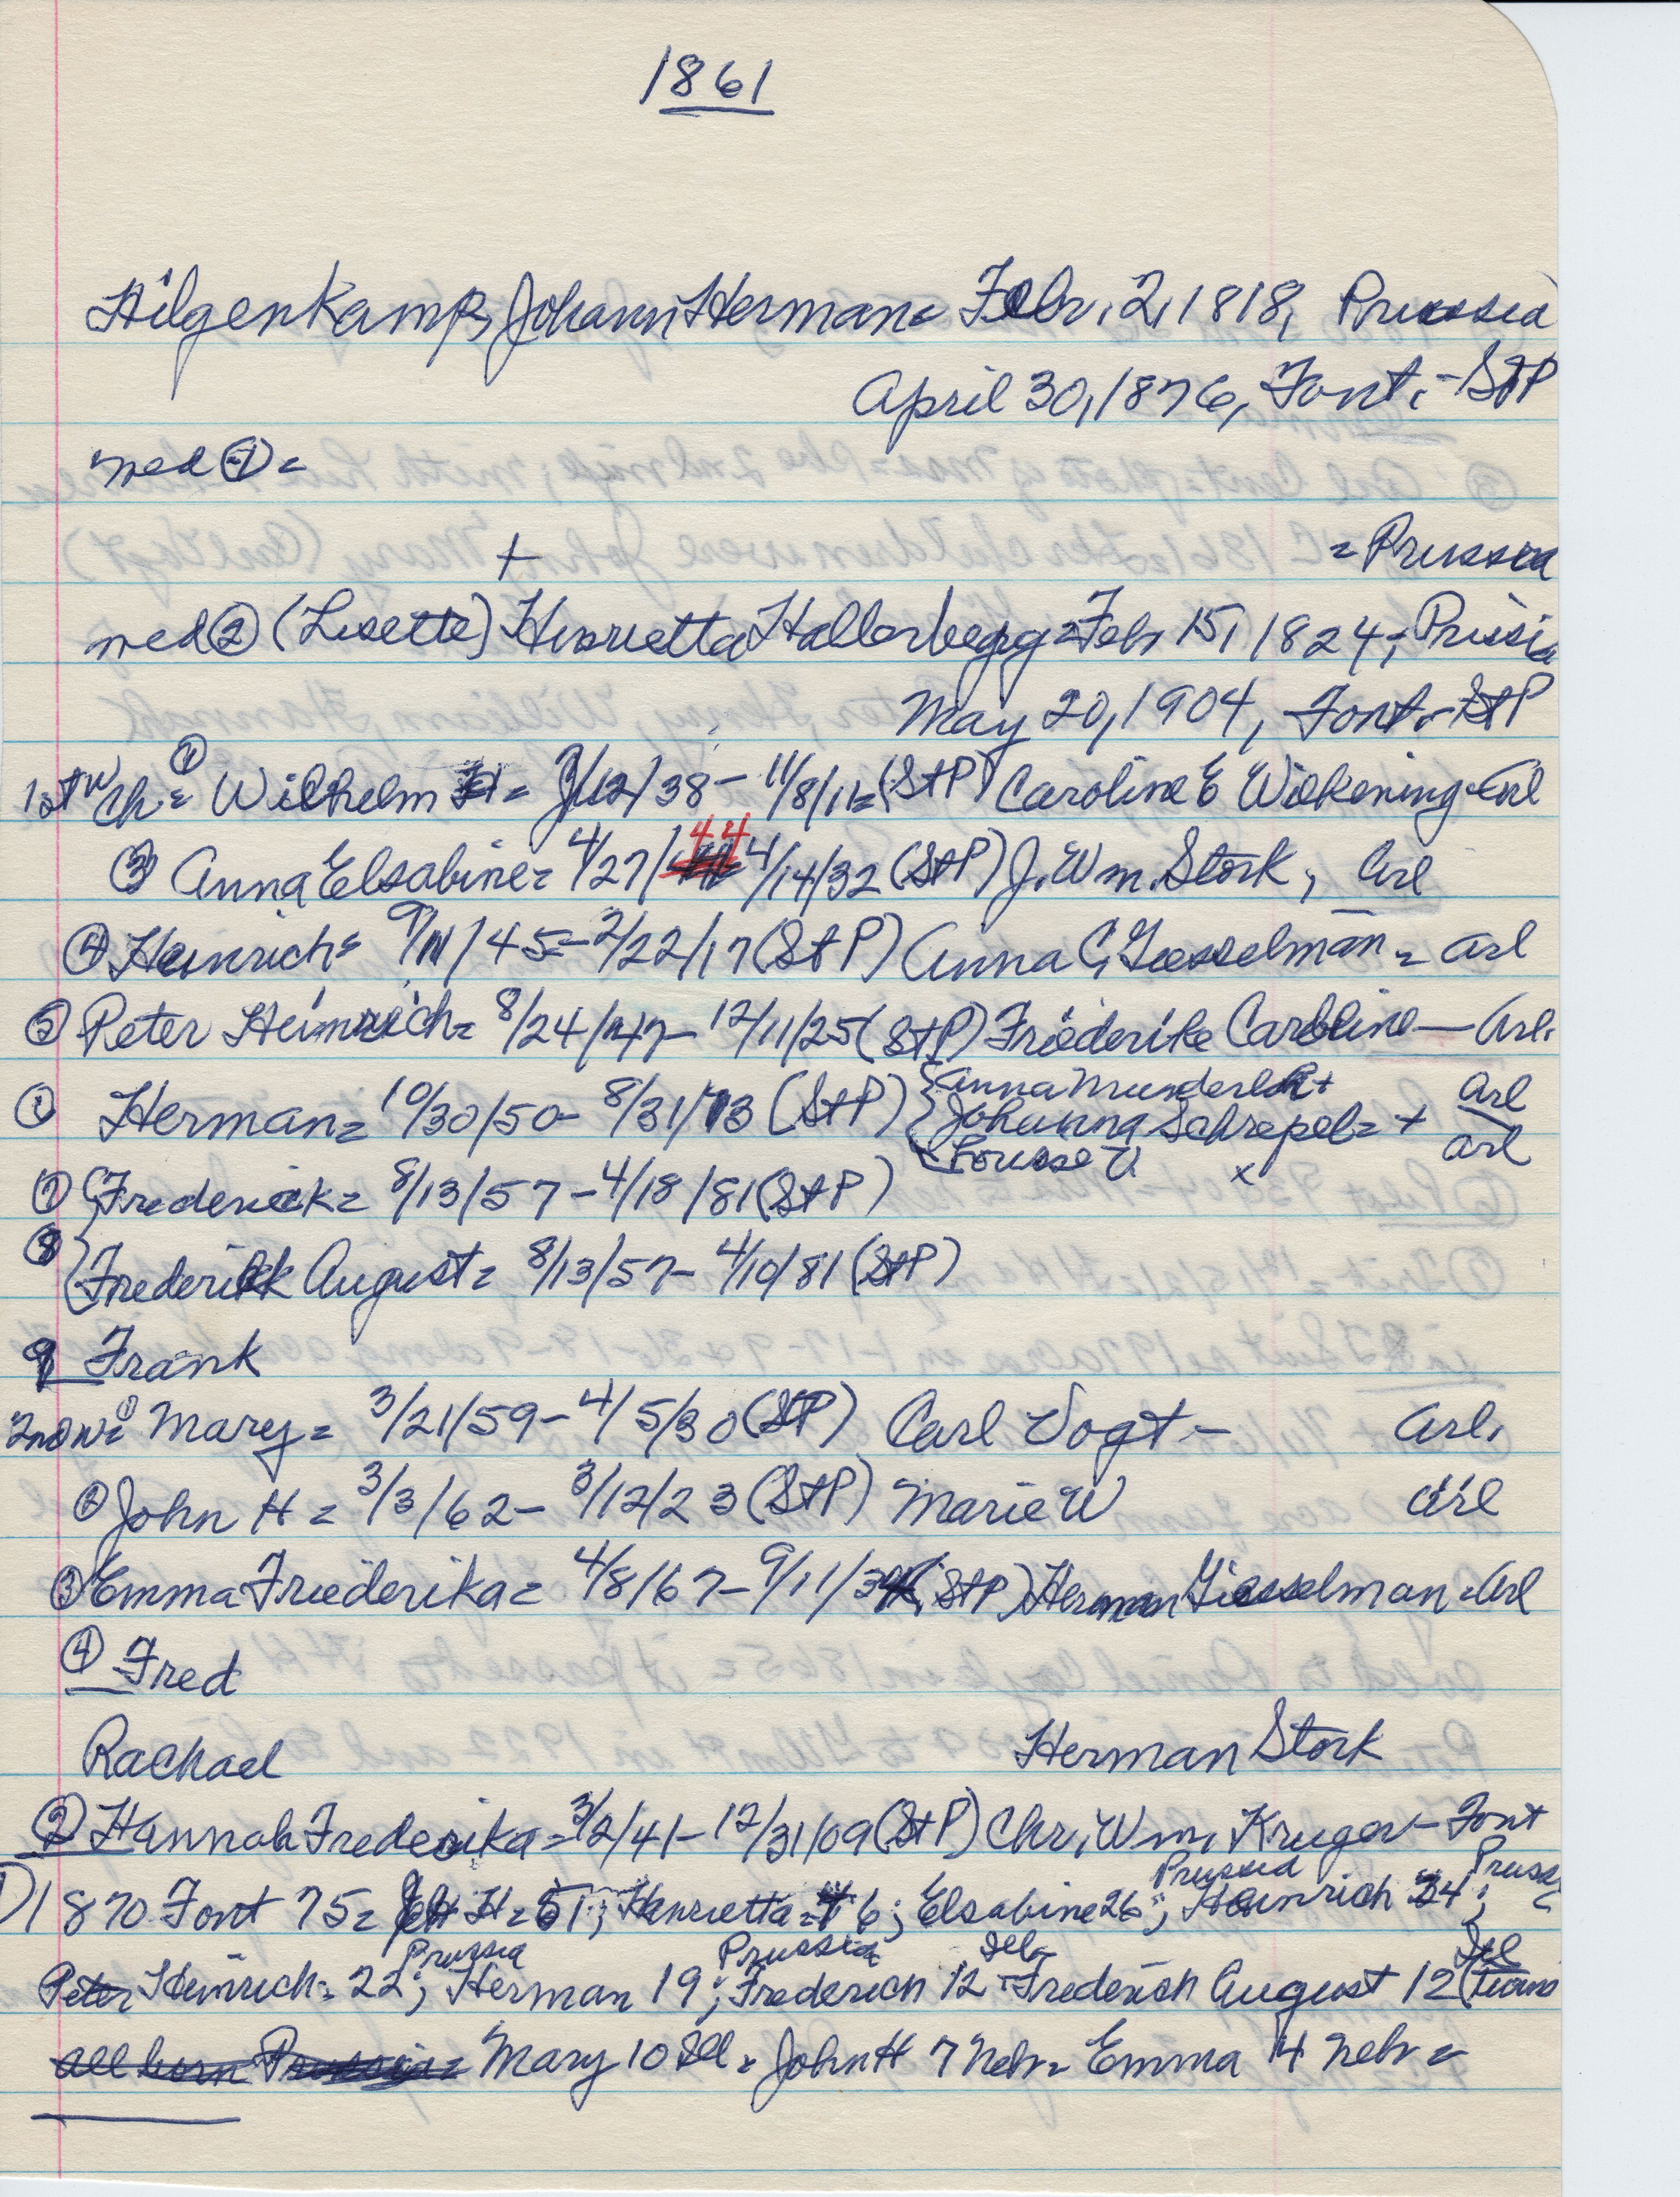 1861
Hilgenkamp, Johann Herman = Febr. 2, 1818, Prussia
April 30, 1876, Font. - StP
med ① =
+ = Prussia
med ② (Lisette) Henrietta Hallerberg = Feb 15, 1824; Prussia
May 20, 1904, Font. - StP
1st w ch = ① Wilhelm = /12/38 - 11/8/11 = (StP) Caroline E Wilkening - Arl
③ Anna Elsabine = 4/27/44 4/14/32 (StP) J. Wm. Stork, Arl
④ Heinrich = 9/11/45 = 2/22/17 (StP) Anna C. Giesselman = Arl
⑤ Peter Heinrich = 8/24/47 - 12/11/25 (StP) Friederike Caroline — Arl.
Herman = 10/30/50 - 8/31/13 (StP) { Anna Munderloh +
Johanna Schrepel = + Arl
Louise V. x Arl
⑦ { Frederick = 8/13/57 - 4/18/81 (StP)
⑧ { Frederick August = 8/13/57 - 4/10/81 (StP)
9 Frank
2nd w = ① Mary = 3/21/59 - 4/5/30 (StP) Carl Vogt - Arl.
② John H = 3/3/62 - 3/12/23 (StP) Marie W Arl
③ Emma Friederika = 4/8/67 - 9/11/34 (StP) Herman Giesselman = Arl
④ Fred
Rachael Herman Stork
② Hannah Frederika = 3/2/41 - 12/31/09 (StP) Chr. Wm. Kruger - Font
1) 1870 Font 75 = H = 51; Henrietta = 46; Elsabine 26 Prussia; Heinrich 24 Pruss;
Peter Heinrich = 22 Prussia; Herman 19 Prussia; Frederich 12 Ill - Frederich August 12 Ill (twins
all born Prussia = Mary 10 Ill = John H 7 Nebr = Emma 4 Nebr =